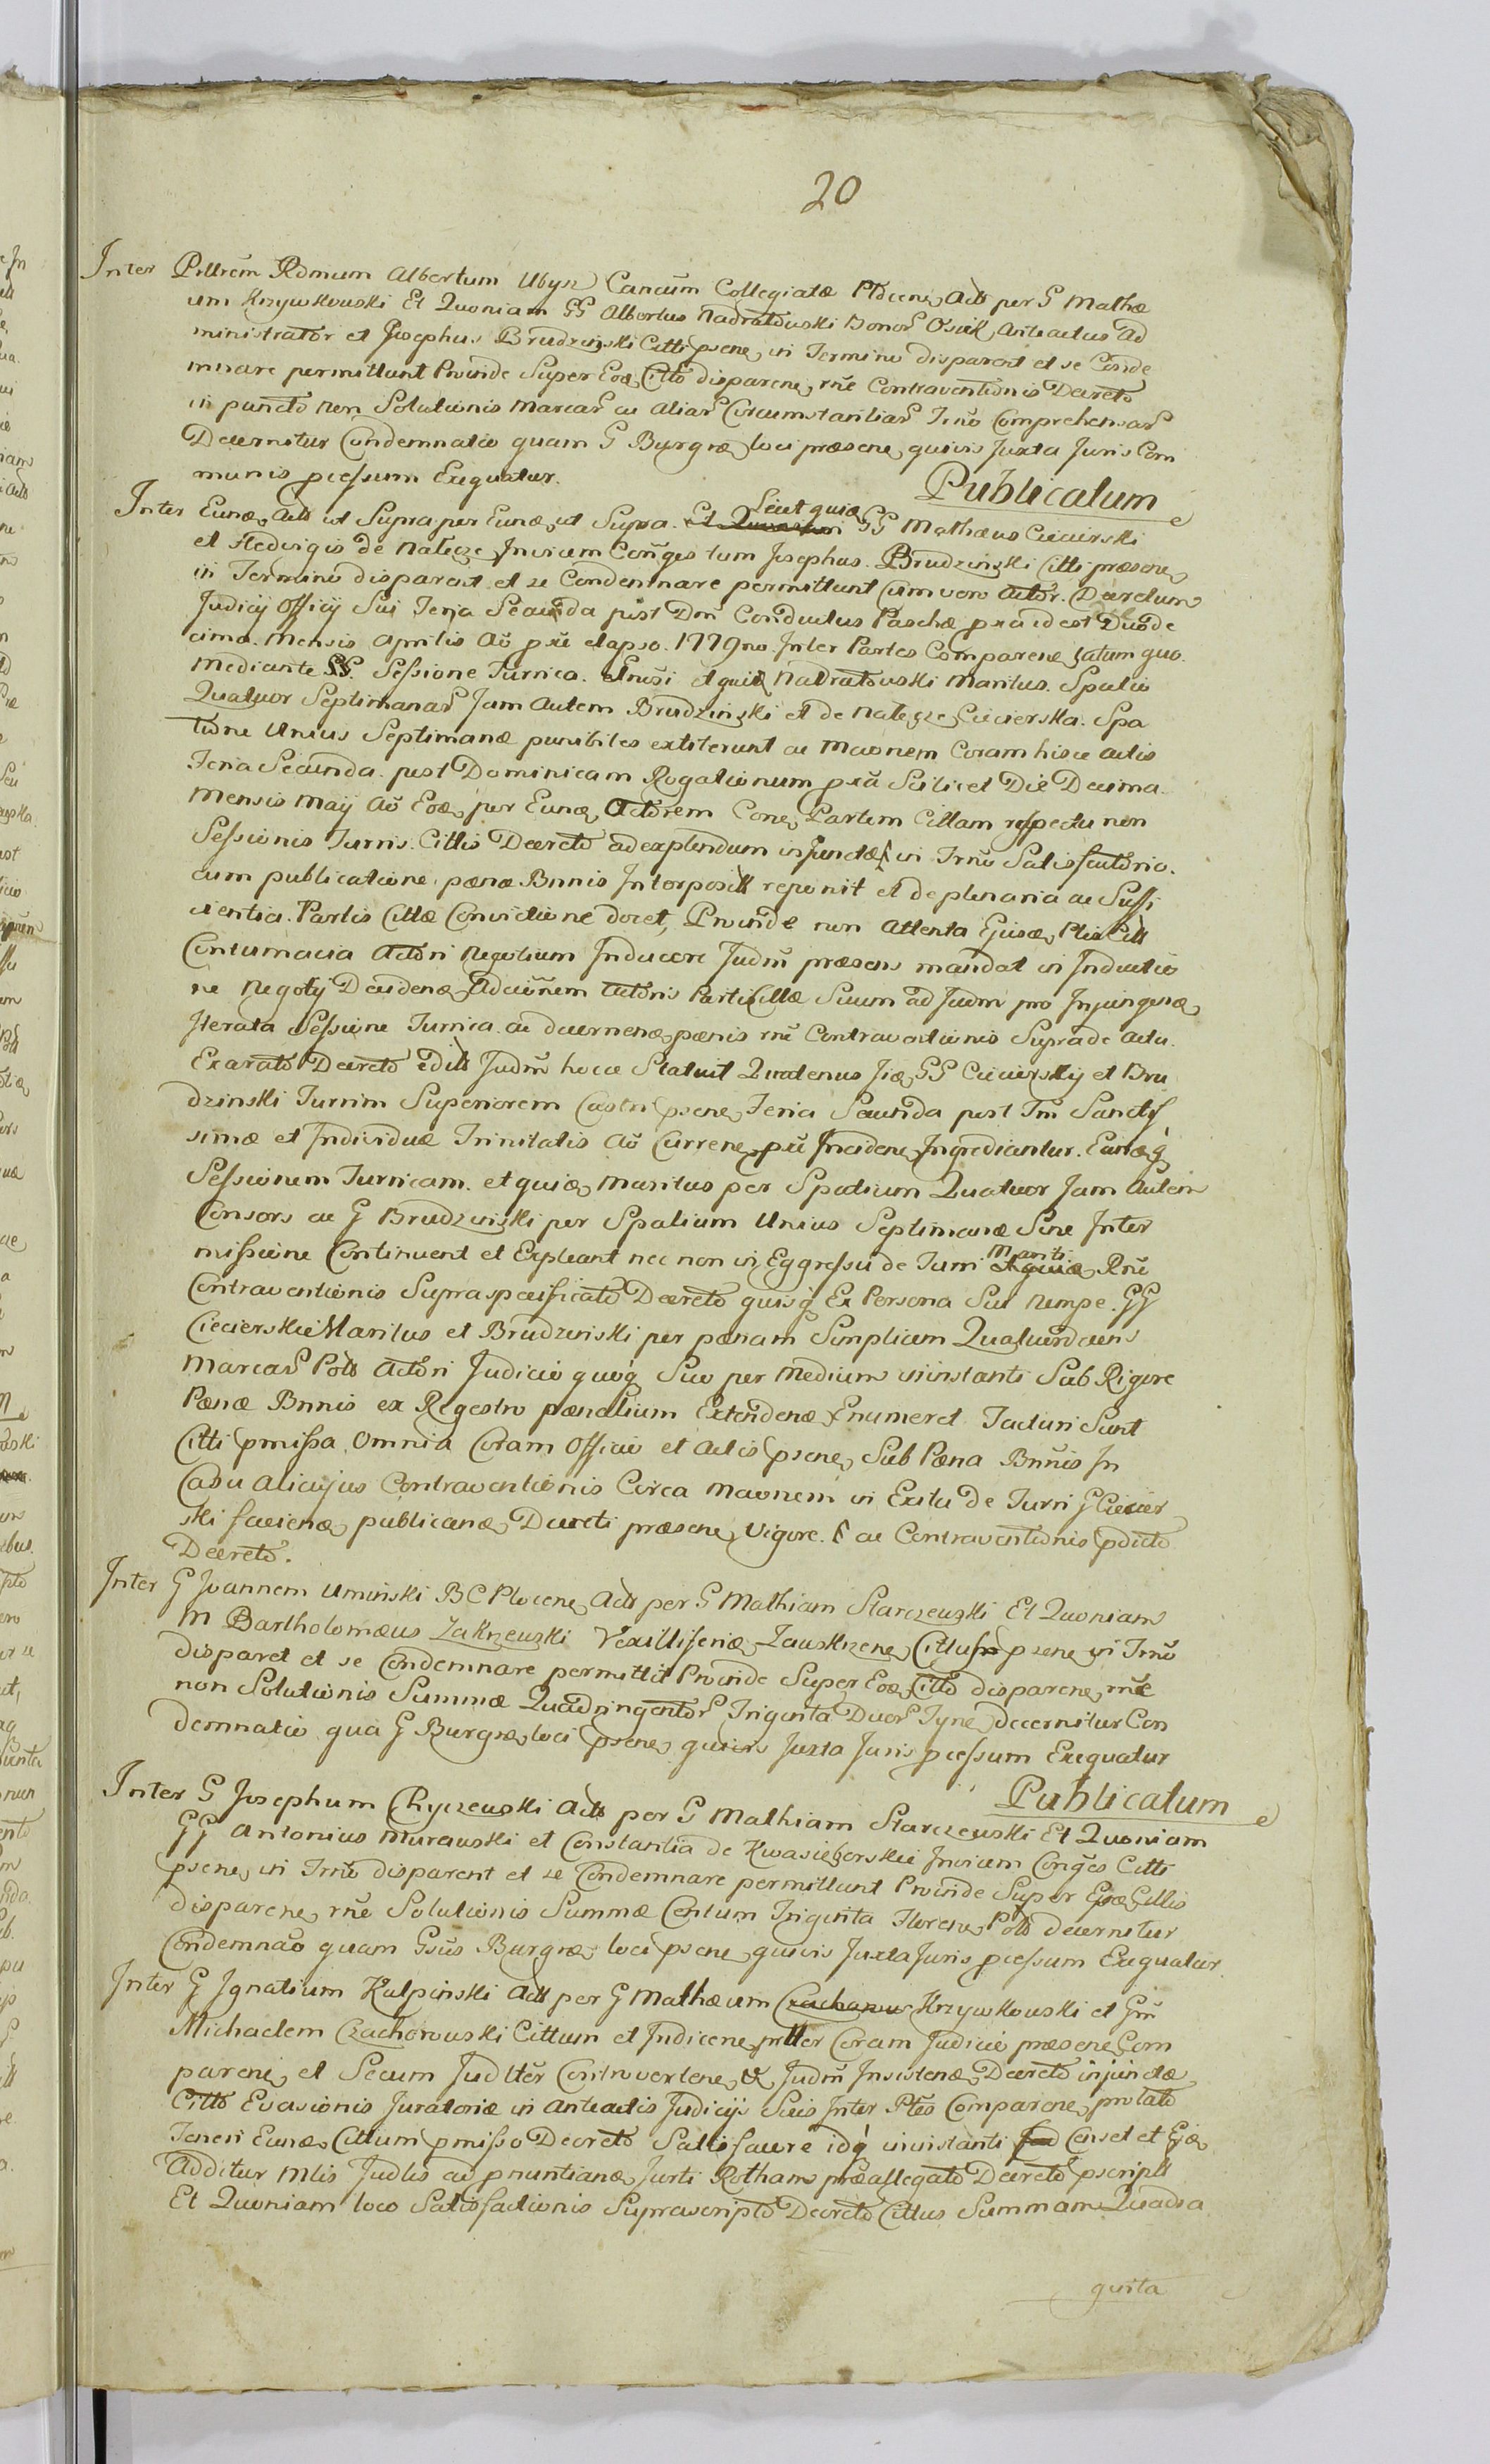 20
Inter Pillrem Rdmum Albertum Ubysz Cancum Collegiatæ Plocene, Actt per G Mathæ
um Krzywkowski Et Quoniam GG Albertus Nadratowski Bonor Osiek Anteactus Ad
ministrator et Josephus Brudzinski Citti psene, in Termino disparent et se Conde
mnare permittunt Proinde Super Eoæ, Citto disparene, rñe Contraventionis Decreto
in puncto non Solutionis Marcar ac aliar Circumstantiar Trno Comprehensar
Decernitur Condemnatio quam G Burgræ, loci præsene, quivis Juxta Juris Com
munis pcessum Exequatur.
Publicatum
Inter Eunæ, Actt ut Supra per Eunæ, ut Supra. Sicut quiæ GG Mathæus Ciecierski
et Hedvigis de Natęcze Invicem Conges tum Josephus Brudzinski Citti præsene,
in Termino disparent et se Condemnare permittunt Cum vero Actor. Decretum
Judicij Officij Sui Feria Secunda post Dom Conductus Paschæ pxa id est Duode
cima. Mensis Aprilis Ao pxe elapso. 1779no. Inter Partes Comparene latum quo.
Mediante SS. Sessione Turrica. et quiæ Nadratowski Maritus. Spatio
Quatuor Septimanar Jam Autem Brudzinski et de Natęcze, Ciecierska. Spa
tione Unius Septimanæ punibiles extiterunt ac Maonem Coram hisce Actis
Feria Secunda. post Dominicam Rogationum pxa Scilicet Die Decima
Mensis Maij Ao Eoæ, per Eunæ, Actorem Cone, Partem Cittam respectu non
Sessionis Turris. Cittis Decreto ad explendum injunctæ in Trno Satisfactorio.
cum publicatione pœnæ Bnnis Interposit reponit et de plenaria ac Suffi
cientia. Partis Cittæ Convictione docet, Proinde non Attenta Ejusæ, Ptis Citt
Contumacia Actori Negotium Inducere Judm præsens mandat in Inductio
ne Negotij Decidenæ, Adcitonem Actoris Parti Cittæ Suum ad Judm pro Injungenæ,
Iterata Sessione Turrica. ac decernenæ, pœnis rñe Contraventionis Supra de Actu.
Exarato Decreto edit Judm hocce Statuit Quatenus Jiæ, GG Ciecierscÿ et Bru
dzinski Turrim Superiorem Castri psene, Feria Secunda post Fm Sanctis
simæ et Individuæ Trinitatis Ao Currene, pxe Incidene, Ingrediantur. Eamæq
Sessionem Turricam. et quiæ, Maritus per Spatium Quatuor Jam Autem
Consors ac G Brudzinski per Spatium Unius Septimanæ Sine Inter
missione Continuent et Expleant nec non in Eggressu de Turri Mariti Rñe
Contraventionis Supraspecificato Decreto quisq Ex Persona Sui Nempe. GG
Ciecierski Maritus et Brudzinski per pœnam Simplicem Quatuordecim
Marcar Polo Actori Judicio quoq Suo per Medium ininstanti Sub Rigore
Pœnæ Bnnis ex Regestro pœnalium Extendenæ, Enumeret Facturi Sunt
Citti pmissa Omnia Coram Officio et Actis psene, Sub Pœna Bnnis In
Casu alicujus Contraventionis Circa Maonem in Exitu de Turri G Ciecier
ski facienæ, publicanæ, Decreti præsene, Vigore. ac Contraventionis pdicto
Decreto.
Inter G Joannem Uminski BC Plocene, Actt per G Mathiam Starczewski Et Quoniam
M Bartholomæus Zakrzewski Vexilliferiæ, Zauskrzene, Cittus psene in Trno
disparet et se Condemnare permittit Proinde Super Eoæ, Citto disparene, rñe
non Solutionis Summæ Quadringentor Triginta Duor Tyne, decernitur Con
demnatio qua G Burgræ, loci psene, quivis Juxta Juris pcessum Exequatur
Publicatum
Inter G Josephum Chyczewski Actt per G Mathiam Starczewski Et Quoniam
GG Antonius Murawski et Constantia de Kwasieborskie Invicem Conges Citti
psene, in Trno disparent et se Condemnare permittunt Proinde Super Eisæ, Cittis
disparene, rñe Solutionis Summæ Centum Triginta Florene, Polo decernitur
Condemnao quam Gsus Burgræ, loci psene, quivis Juxta Juris pcessum Exequatur.
Inter G Ignatium Kulpinski Actt per G Mathæum Krzywkowski et Gm
Michaelem Czachorowski Cittum et Indicene, pntter Coram Judicio præsene, Com
parene, et Secum Judlter Controvertene, Judm Insistenæ, Decreto injunctæ,
Citto Evasionis Juratoriæ in Anteactis Judicijs Suis Inter Ptes Comparene, prolato
Teneri Eunæ, Cittum pmisso Decreto Satisfacere idq ininstanti Censet et Ejæ,
Additur Mlis Judlis ad pnuntianæ, Jurti Rotham præallegato Decreto pscript
Et Quoniam loco Satisfactionis Suprascripto Decreto Cittus Summam Quadra
ginta